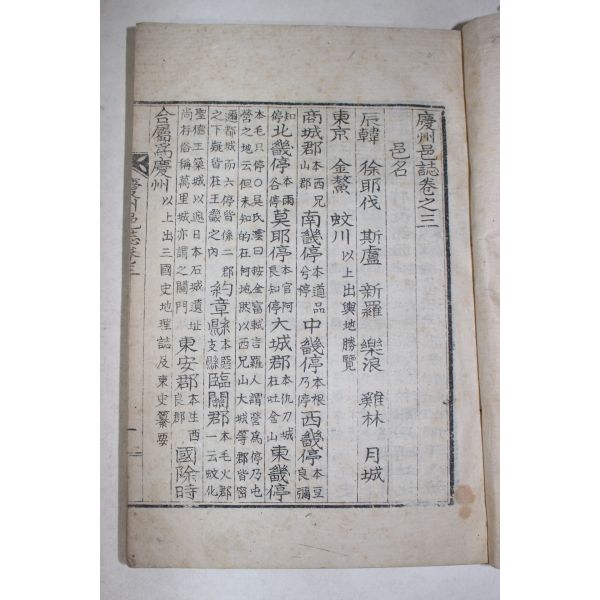 慶州邑誌卷之三
邑名
辰韓 徐耶伐 斯盧 新羅 樂浪 雞林 月城
東京 金鰲 蚊川 以上出輿地勝覽
商城郡 本西兄山郡 南畿停 本道品兮停 中畿停 本根乃停 西畿停 本豆良彌
知停 北畿停 本雨谷停 莫耶停 本官阿良知停 大城郡 本仇刀城在吐含山 東畿停
本毛只停○吳氏澐曰按金富軾言羅人謂營爲停乃屯
營之地云但未知的在何地然以西兄山大城等郡皆密
邇都城而六停皆係二郡之下疑皆在王畿之內 約章縣 本惡支縣 臨關郡 本毛火郡一云蚊化
聖德王築城以遮日本石城遺址尚存俗稱萬里城亦謂之關門 東安郡 本生西良郡 國除時
合屬爲慶州 以上出三國史地理誌及東史纂要
慶州邑誌卷三